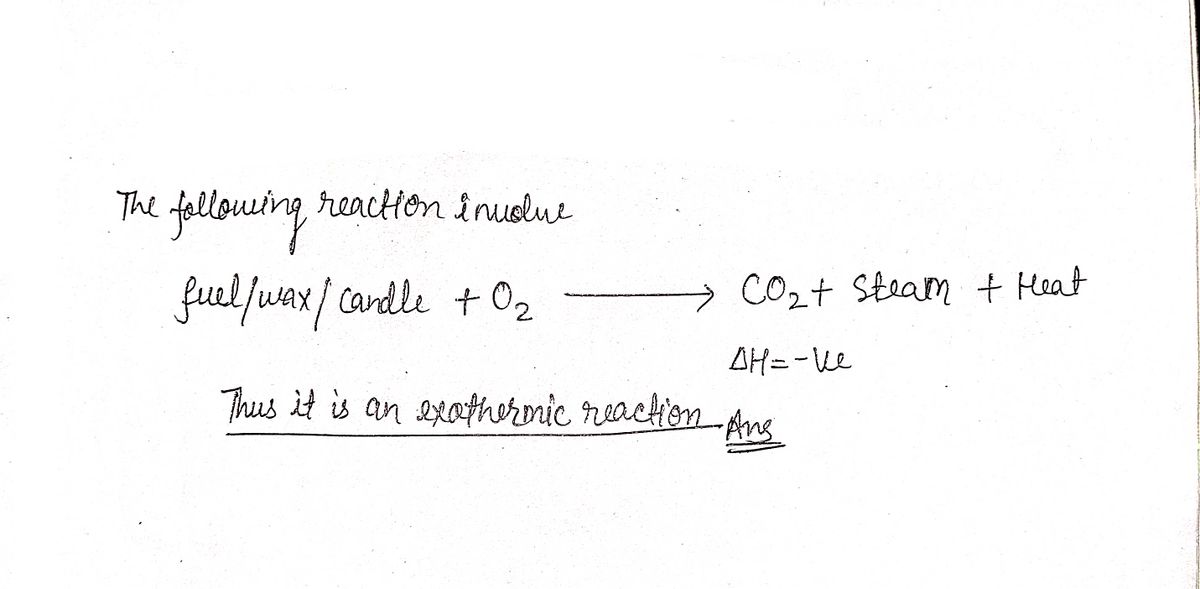 The following reaction involve
fuel/wax/candle + O2 → CO2 + Steam + Heat
ΔH = -ve
Thus it is an exothermic reaction Ans